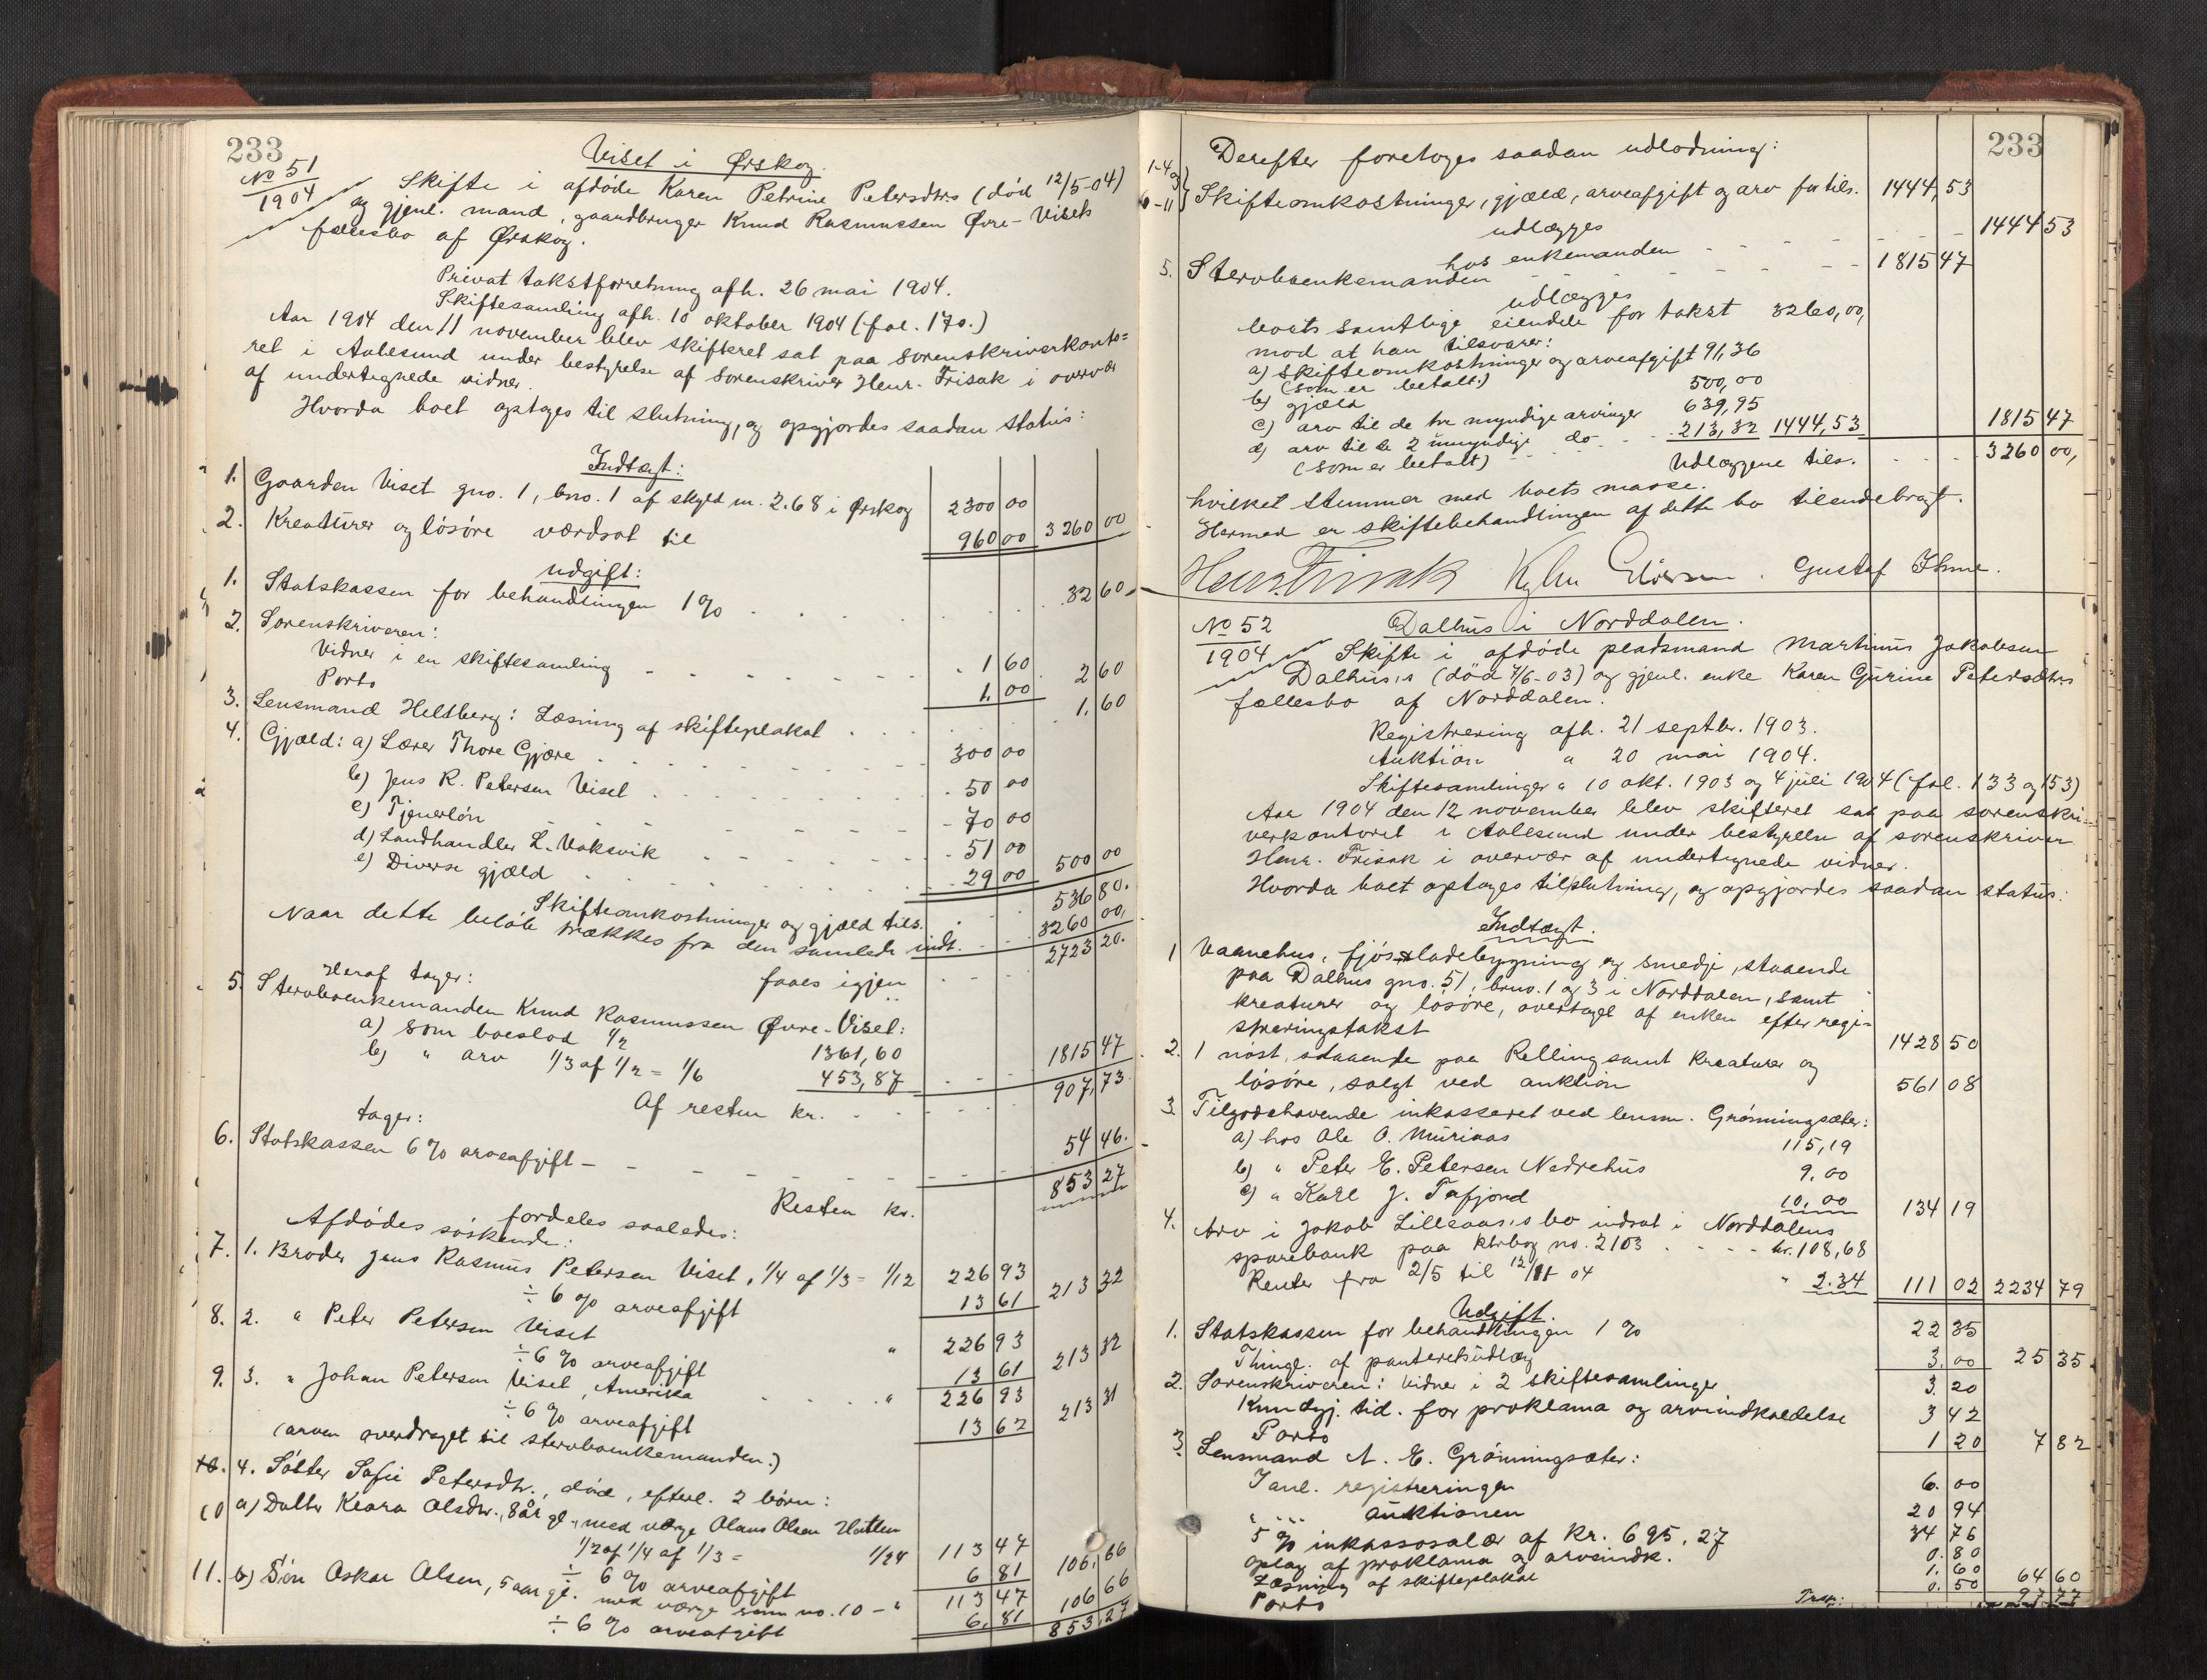 233
No 51
1904
Viset i Ørskog.
Skifte i afdöde Karen Petrine Petersdtrs (död 12/5-04)
og gjenl. mand, gaardbruger Knud Rasmussen Øvre-Visets
fællesbo af Ørskog.
Privat takstforretning afh. 26 mai 1904.
Skiftesamling afh. 10 oktober 1904 (fol. 170.)
Aar 1904 den 11 november blev skifteret sat paa sorenskriverkonto-
ret i Aalesund under bestyrelse af sorenskriver Henr. Frisak i overvær
af undertegnede vidner.
Hvorda boet optoges til slutning, og opgjordes saadan status:
Indtægt:
1. Gaarden Viset gno. 1, bno. 1 af skyld m. 2.68 i Ørskog 2300 00
2. Kreaturer og lösöre værdsat til 960 00 3260 00
Udgift:
1. Statskassen for behandlingen 1% 32 60
2. Sorenskriveren:
Vidner i en skiftesamling 1 60
Porto 1. 00 2 60
3. Lensmand Heltberg: Læsning af skifteplakat 1. 60
4. Gjæld: a) Lærer Thore Gjære 300 00
b) Jens R. Petersen Viset 50 00
c) Tjenerlön 70 00
d) Landhandler L. Vaksvik 51 00
e) Diverse gjæld 29 00 500 00
Skifteomkostninger og gjæld tils. 536 80.
Naar dette belöb trækkes fra den samlede indt. 3260 00,
faaes igjen 2723 20.
Heraf tager:
5. Stervboenkemanden Knud Rasmussen Øvre-Viset:
a) som boeslod 1/2 1361,60
b) " arv 1/3 af 1/2 = 1/6 453,87 1815 47
Af resten kr. 907,73
tager:
6. Statskassen 6% arveafgift 54 46.
Resten kr. 853 27
fordeles saaledes:
Afdödes söskende:
7. 1. Broder Jens Rasmus Petersen Viset, 1/4 af 1/3 = 1/12 226 93
÷ 6% arveafgift 13 61 213 32
8. 2. " Peter Petersen Viset " 226 93
÷ 6% arveafgift 13 61 213 32
9. 3. " Johan Petersen Viset, Amerika " 226 93
÷ 6% arveafgift 13 62 213 31
(arven overdraget til stervboenkemanden.)
10. 4. Söster Sofie Petersdtr., död, efterl. 2 börn:
10 a) Datter Klara Olsdtr., 8 år gl., med værge Olaus Olsen Hatlen
1/2 af 1/4 af 1/3 = 1/24 113 47
÷ 6% arveafgift 6 81 106,66
11. b) Sön Oskar Olsen, 5 aar gl. med værge som no. 10 - " 113 47
÷ 6% arveafgift 6. 81 106 66
853,27
233
Derefter foretoges saadan udlodning:
1-4 og
6-11 Skifteomkostninger, gjæld, arveafgift og arv for tils. 1444,53
udlægges
hos enkemanden 1444 53
5. Stervboenkemanden 1815 47
udlægges
boets samtlige eiendele for takst 3260,00,
mod at han tilsvarer:
a) skifteomkostninger og arveafgift 91,36
(som er betalt.)
b) gjæld 500,00
c) arv til de tre myndige arvinger 639,95
d) arv til de 2 umyndige do 213,32 1444,53 1815 47
(som er betalt) Udlæggene tils. 3260 00,
hvilket stemmer med boets masse.
Hermed er skiftebehandlingen af dette bo tilendebragt.
Henr. Frisak Gustaf Ihme.
No 52
1904
Dalhus i Norddalen.
Skifte i afdöde pladsmand Martinus Jakobsen
Dalhus's (död 4/6-03) og gjenl. enke Karen Gurine Petersdtrs
fællesbo af Norddalen.
Registrering afh. 21 septbr. 1903.
Auktion " 20 mai 1904.
Skiftesamlinger " 10 okt. 1903 og 4 juli 1904 (fol. 133 og 153)
Aar 1904 den 12 november blev skifteret sat paa sorenskri-
verkontoret i Aalesund under bestyrelse af sorenskriver
Henr. Frisak i overvær af undertegnede vidner.
Hvorda boet optoges til slutning, og opgjordes saadan status:
Indtægt.
1 Vaanehus, fjös & ladebygning og smedje, staaende
paa Dalhus gno. 51, bruno. 1 og 3 i Norddalen, samt
kreaturer og lösöre, overtaget af enken efter regi-
streringstakst 1428 50
2. 1 nöst, staaende paa Relling samt kreaturer og
lösöre, solgt ved auktion 561 08
3. Tilgodehavende inkasseret ved lensm. Grönningsæter:
a) hos Ole O. Muriaas 115,19
b) " Peter E. Petersen Nedrehus 9.00
c) " Karl J. Tafjord 10,00 134 19
4. Arv i Jakob Lilleaas's bo indsat i Norddalens
sparebank paa ktrbog no. 2103 kr. 108,68
Renter fra 2/5 til 12/11 04 " 2.34 111 02 2234 79
Udgift.
1. Statskassen for behandlingen 1% 22 35
Thingl. af panteretsudlæg 3. 00 25 35
2. Sorenskriveren: Vidner i 2 skiftesamlinger 3. 20
Kundgj. tid. for proklama og arveindkaldelse 3 42
Porto 1 20 7 82
3. Lensmand A. E. Grönningsæter:
I anl. registreringen 6. 00
" " auktionen 20 94
5% inkassosalær af kr. 695,27 34 76
Oplæg af proklama og arveindk. 0. 80
Læsning af skifteplakat 1. 60
Porto 0. 50 64 60
Trsp: 97 77